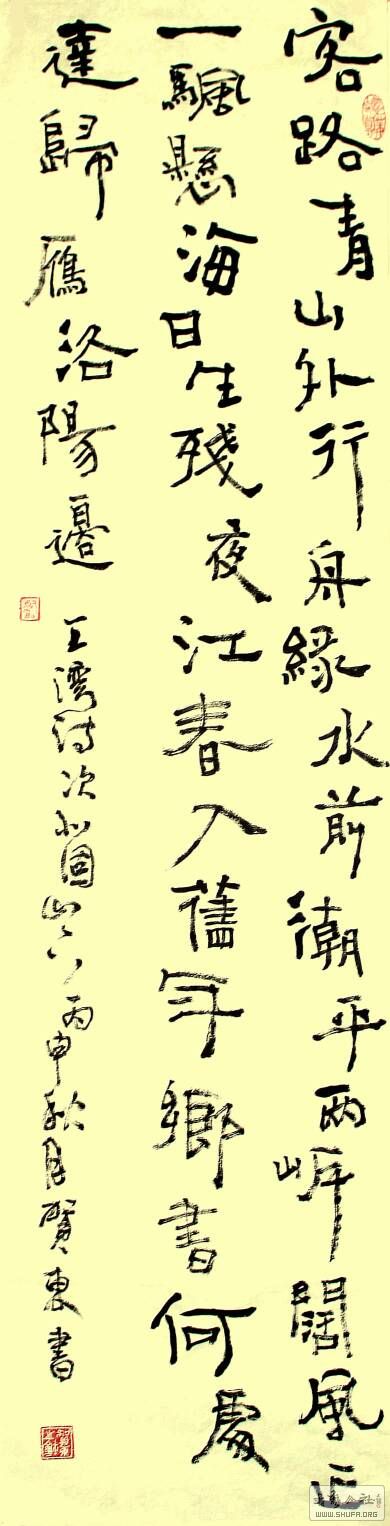 客路青山外行舟綠水前潮平兩岸闊風正
一颿懸海日生殘夜江春入舊年鄉書何處
達歸鴈洛陽邊
王灣詩次北固山下丙申秋月賢東書
WWW.SHUFA.ORG